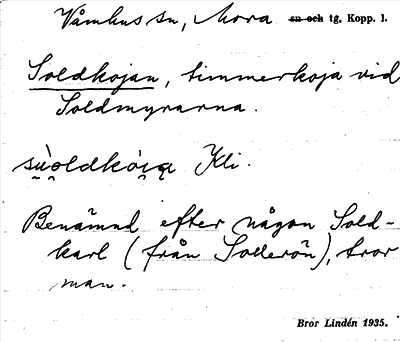 Våmhus sn, Mora sn och tg. Kopp. l.
Soldkojan, timmerkoja vid
Soldmyrarna.
sùoldkó̜i̜a̜ Kli.
Benämnd efter någon Sold-
karl (från Sollerön), tror
man.
Bror Lindén 1935.